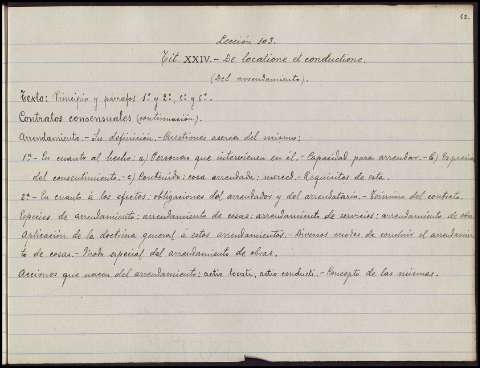 52.
Lección 103.
Tit. XXIV.- De locatione et conductione.
(Del arrendamiento).
Texto: Principio y párrafos 1º y 2º, 5º y 6º.
Contratos consensuales (continuación).
Arrendamiento.- Su definición.- Cuestiones acerca del mismo:
1º- En cuanto al hecho: a) Personas que intervienen en él.- Capacidad para arrendar.- b) Expresión
del consentimiento.- c) Contenido: cosa arrendada: merced.- Requisitos de esta.
2º- En cuanto á los efectos: obligaciones del arrendador y del arrendatario.- Término del contrato.
Especies de arrendamiento: arrendamiento de cosas: arrendamiento de servicios: arrendamiento de obra.
Aplicación de la doctrina general a estos arrendamientos.- Diversos modos de concluir el arrendamien-
to de cosas.- Modo especial del arrendamiento de obras.
Acciones que nacen del arrendamiento: actio locati, actio conducti.- Concepto de las mismas.